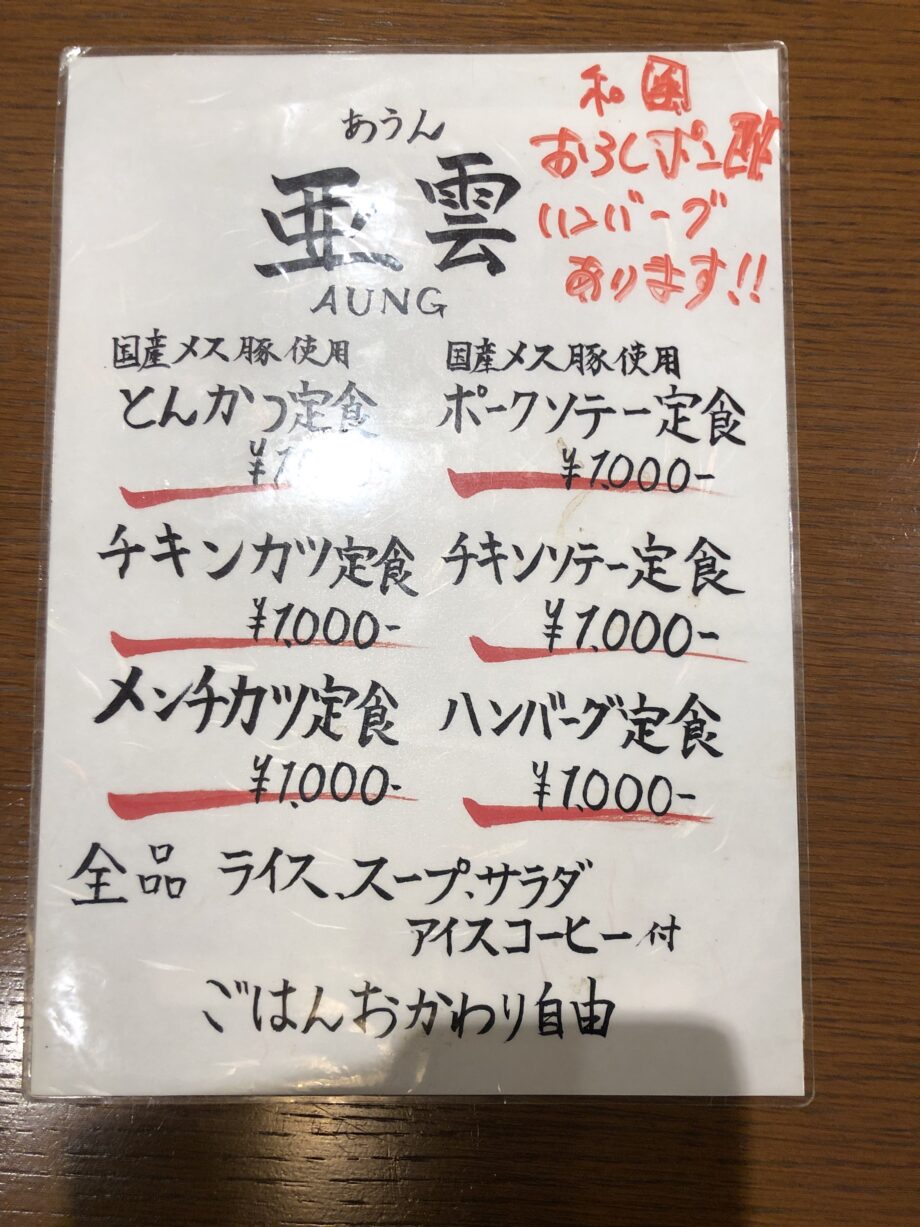 和風
おろしポン酢
ハンバーグ
あります!!
あうん
亜雲
AUNG
国産メス豚使用
とんかつ定食
国産メス豚使用
ポークソテー定食
¥1.000-
チキンカツ定食
¥1.000-
チキンソテー定食
¥1.000-
メンチカツ定食
¥1.000-
ハンバーグ定食
¥1.000-
全品 ライス、スープ、サラダ
アイスコーヒー付
ごはんおかわり自由